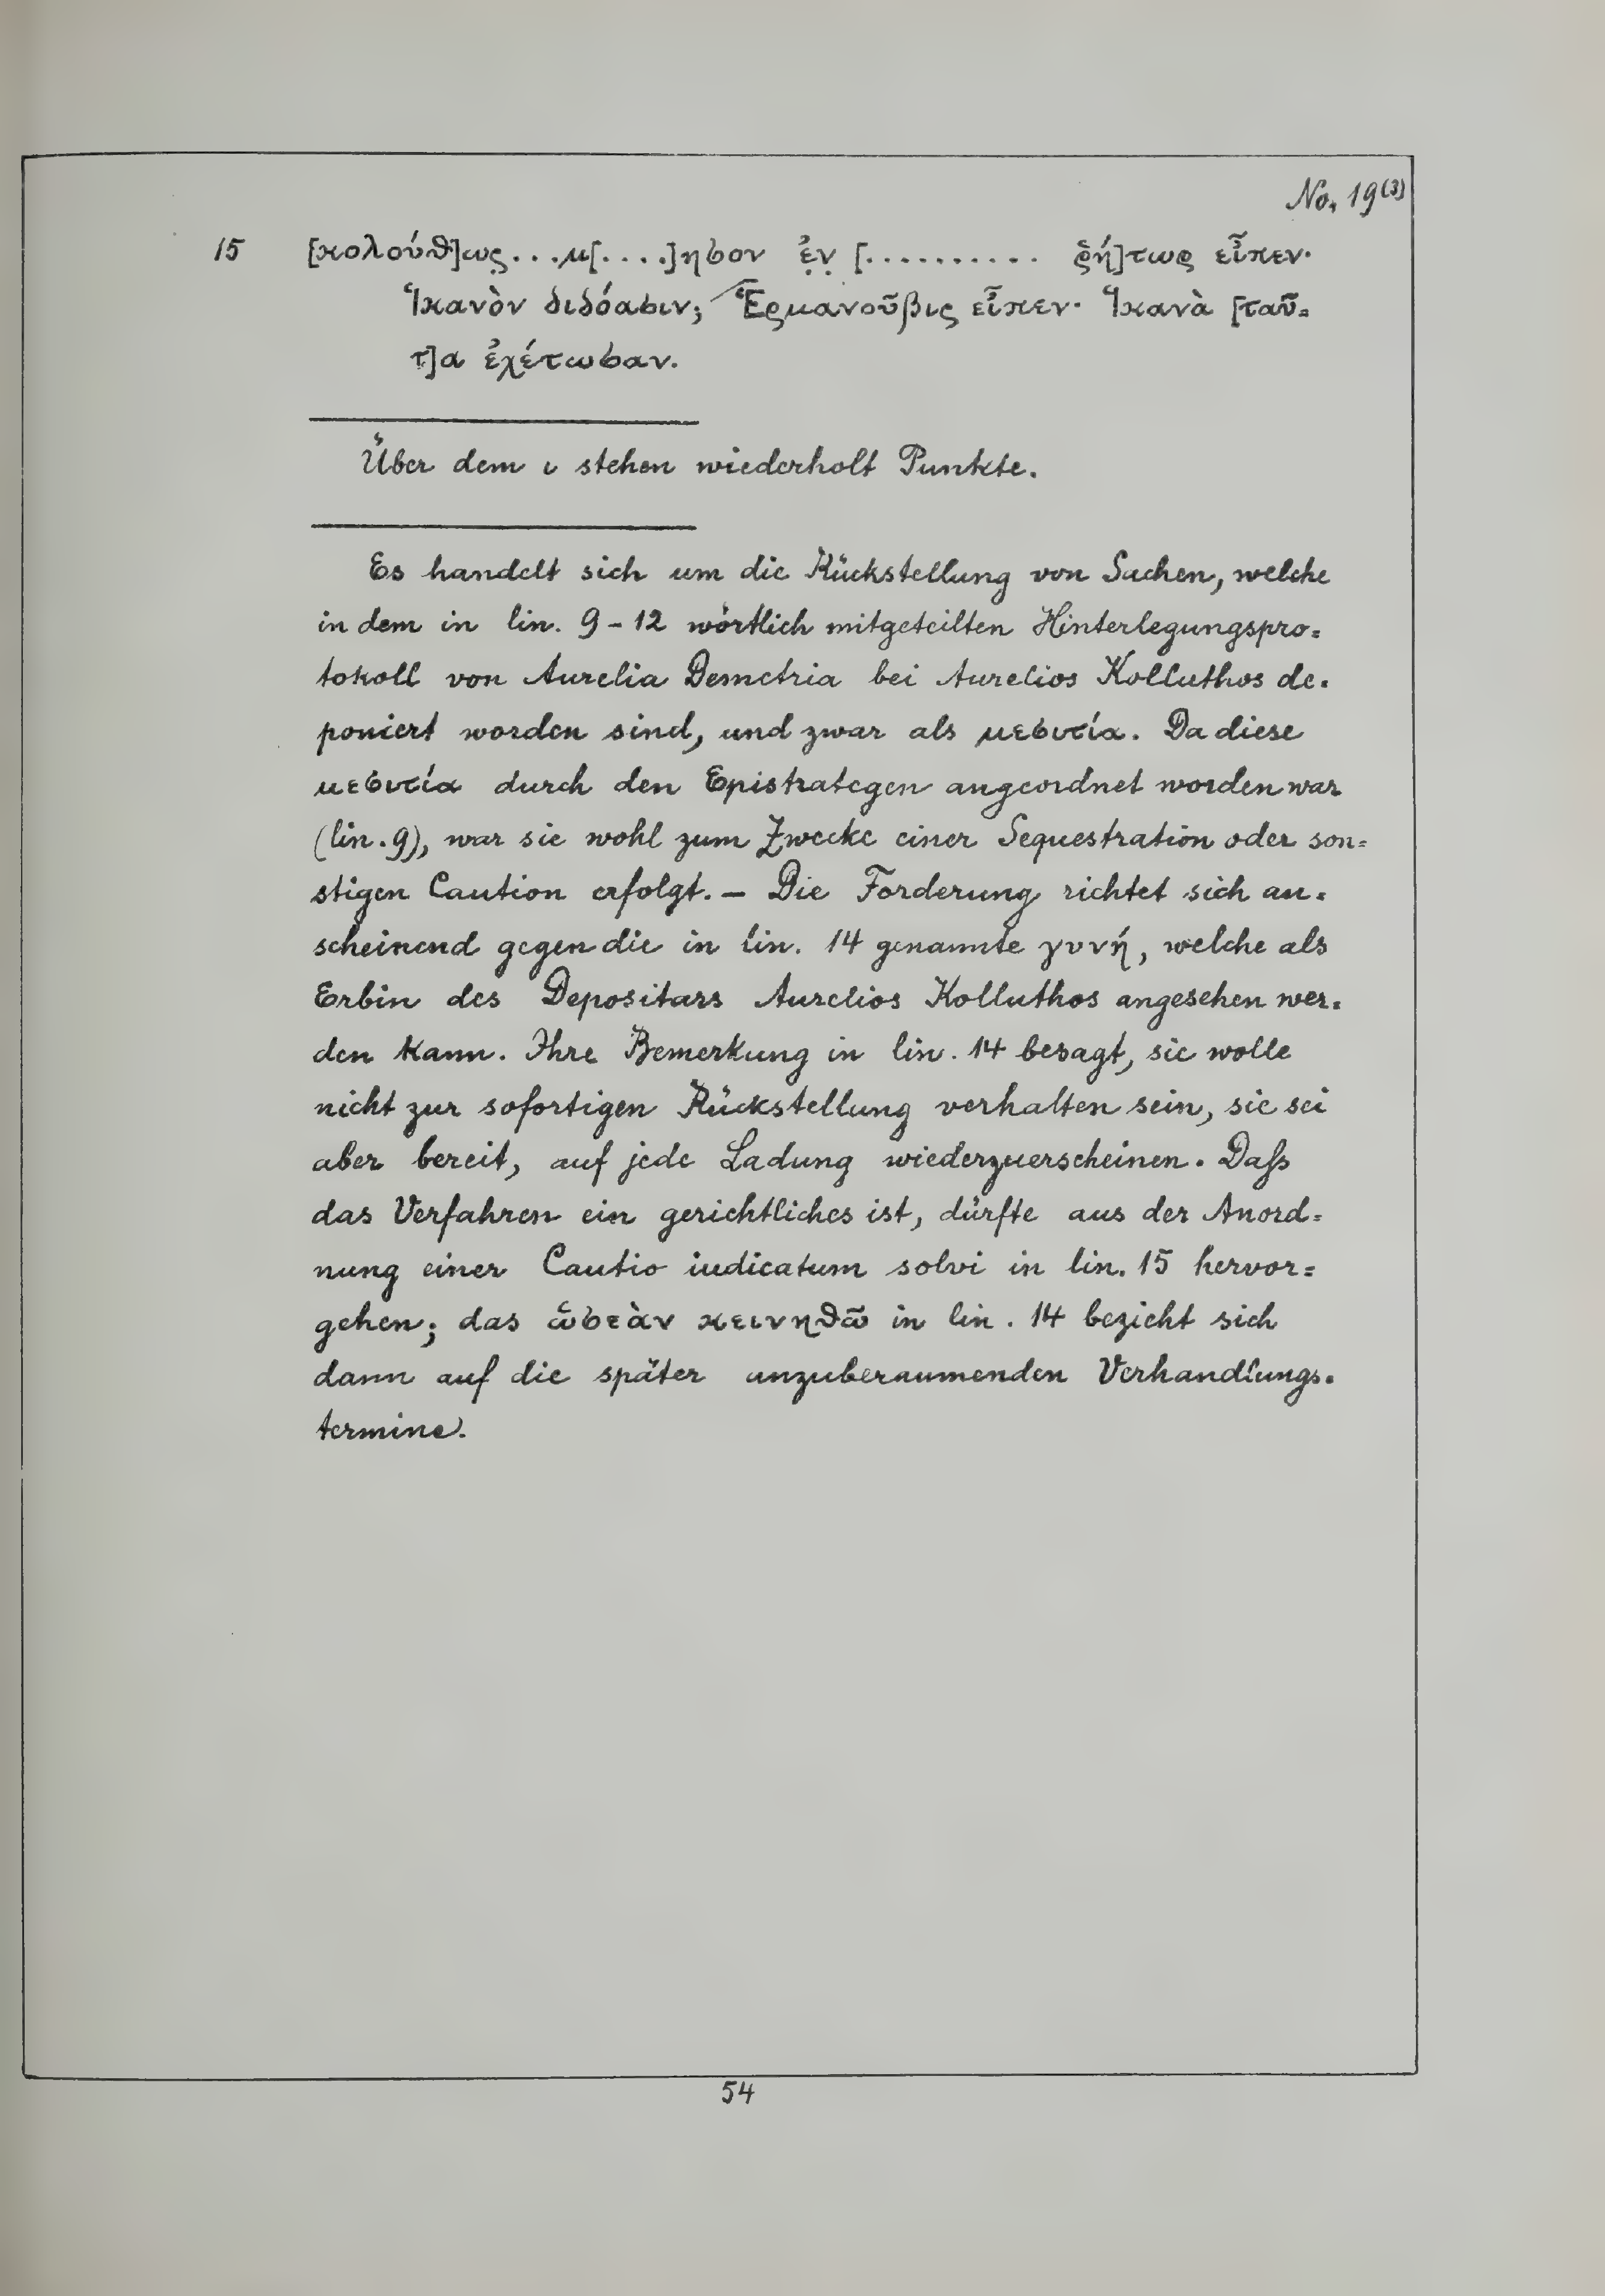 No. 19(3)
15 [κολούθ]ως̣...μ[....]ησον ἐ̣ν̣ [.......... ῥή]τωρ εἶπεν·
Ἱκανὸν διδόασιν; Ἑρμανοῦβις εἶπεν· Ἱκανὰ [ταῦ=
τ]α ἐχέτωσαν.
Über dem ι stehen wiederholt Punkte.
Es handelt sich um die Rückstellung von Sachen, welche
in dem in lin. 9-12 wörtlich mitgeteilten Hinterlegungspro=
tokoll von Aurelia Demetria bei Aurelios Kolluthos de=
poniert worden sind, und zwar als μεσιτία. Da diese
μεσιτία durch den Epistrategen angeordnet worden war
(lin. 9), war sie wohl zum Zwecke einer Sequestration oder son=
stigen Caution erfolgt. – Die Forderung richtet sich an=
scheinend gegen die in lin. 14 genannte γυνή, welche als
Erbin des Depositars Aurelios Kolluthos angesehen wer=
den kann. Ihre Bemerkung in lin. 14 besagt, sie wolle
nicht zur sofortigen Rückstellung verhalten sein, sie sei
aber bereit, auf jede Ladung wiederzuerscheinen. Daſs
das Verfahren ein gerichtliches ist, dürfte aus der Anord=
nung einer Cautio iudicatum solvi in lin. 15 hervor=
gehen; das ὡσεὰν κεινηθῶ in lin. 14 bezieht sich
dann auf die später anzuberaumenden Verhandlungs=
termine.
54